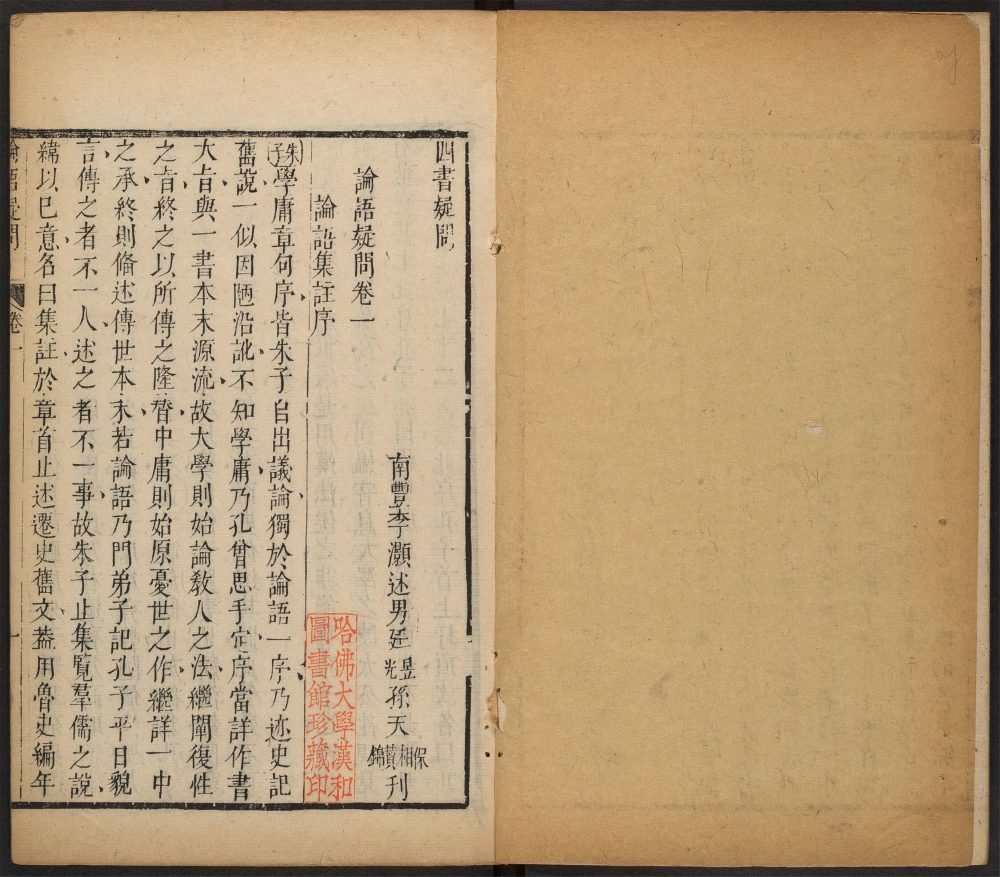 四書疑問
論語疑問卷一
南豐李灝述男廷昱光孫天保相贊錦刊
論語集註序
朱子學庸章句序皆朱子自出議論獨於論語一序乃述史記
舊說一似因陋沿訛不知學庸乃孔曾思手定序當詳作書
大旨與一書本末源流故大學則始論教人之法繼闡復性
之旨終之以所傳之隆替中庸則始原憂世之作繼詳一中
之承終則備述傳世本末若論語乃門弟子記孔子平日貌
言傳之者不一人述之者不一事故朱子止集覽羣儒之說
緯以已意名曰集註於章首止述遷史舊文葢用魯史編年
論語疑問
卷一
一
哈佛大學漢和
圖書館珍藏印